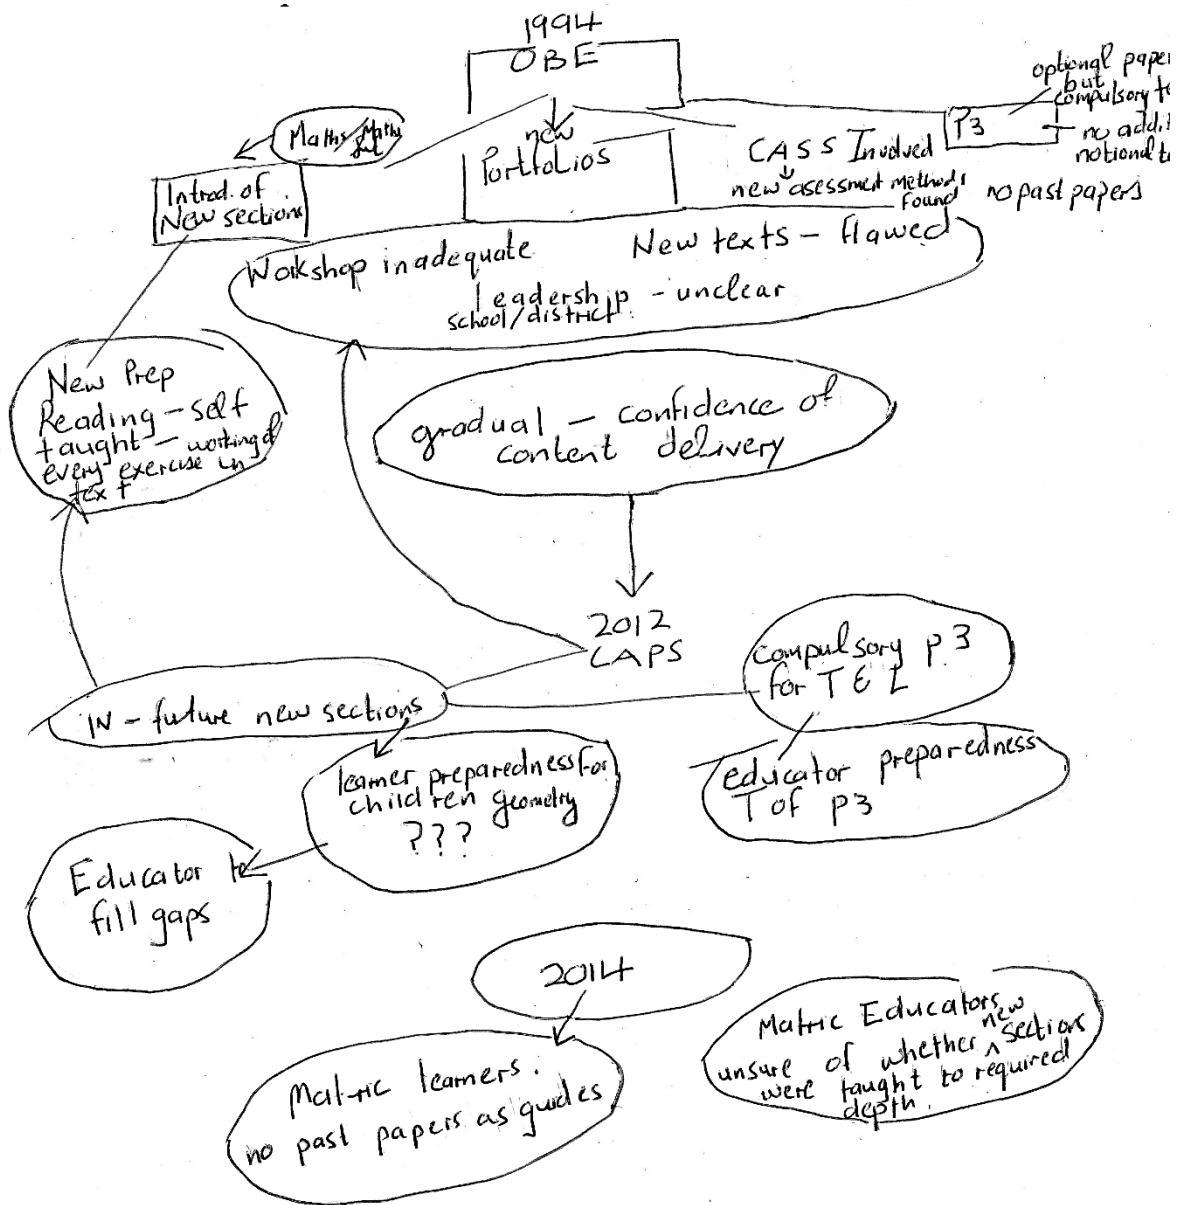 1994
OBE
optional paper
but
compulsory
P3
no
notional
Maths
new
Portfolios
CASS Involved
new asessment methods
found
no past papers
Introd. of
New sections
Workshop inadequate
New texts - flawed
leadership - unclear
school/district.
New Prep
Reading - self
taught - working of
every exercise in
text
gradual - confidence of
content delivery
2012
CAPS
compulsory p3
for T & L
IN - future new sections
learner preparedness for
children geometry
???
educator preparedness
T of p3
Educator to
fill gaps
2014
Matric Educators
unsure of whether new sections
were taught to required
depth.
Matric learners.
no past papers as guides